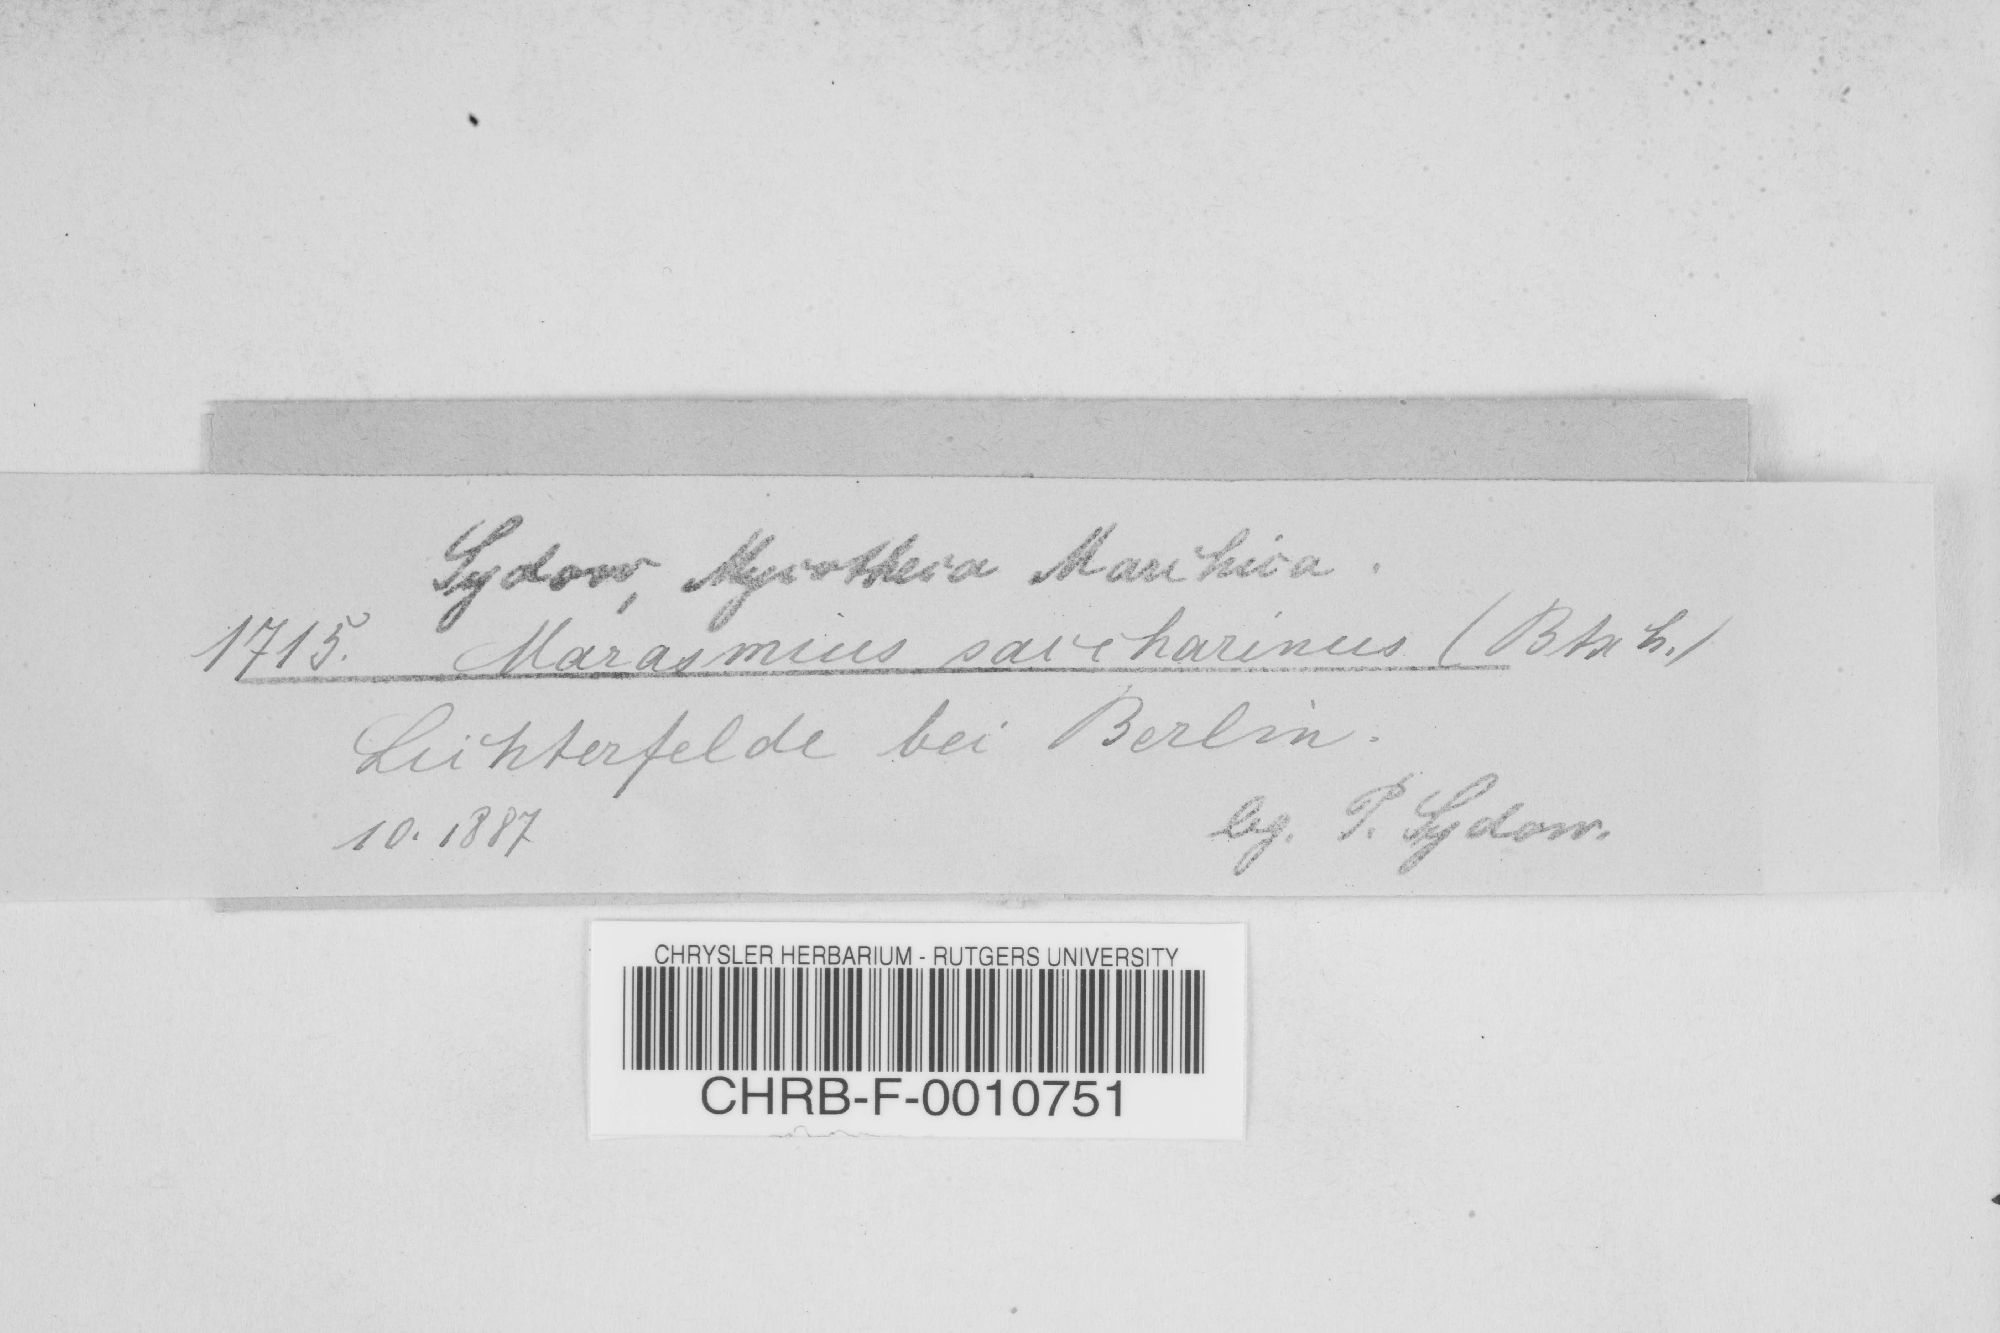 Sydow, Mycotheca Marchica.
1715. Marasmius saccharinus (Btsch.)
Lichterfelde bei Berlin.
10. 1887
leg. P. Sydow.
CHRYSLER HERBARIUM - RUTGERS UNIVERSITY
CHRB-F-0010751